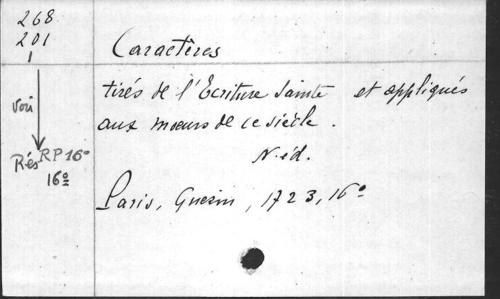 268
201
1
voir
Rés RP 16º
16º
Caractères
tirés de l'Ecriture Sainte et appliqués
aux moeurs de ce siècle.
N. éd.
Paris, Guerin, 1723, 16º